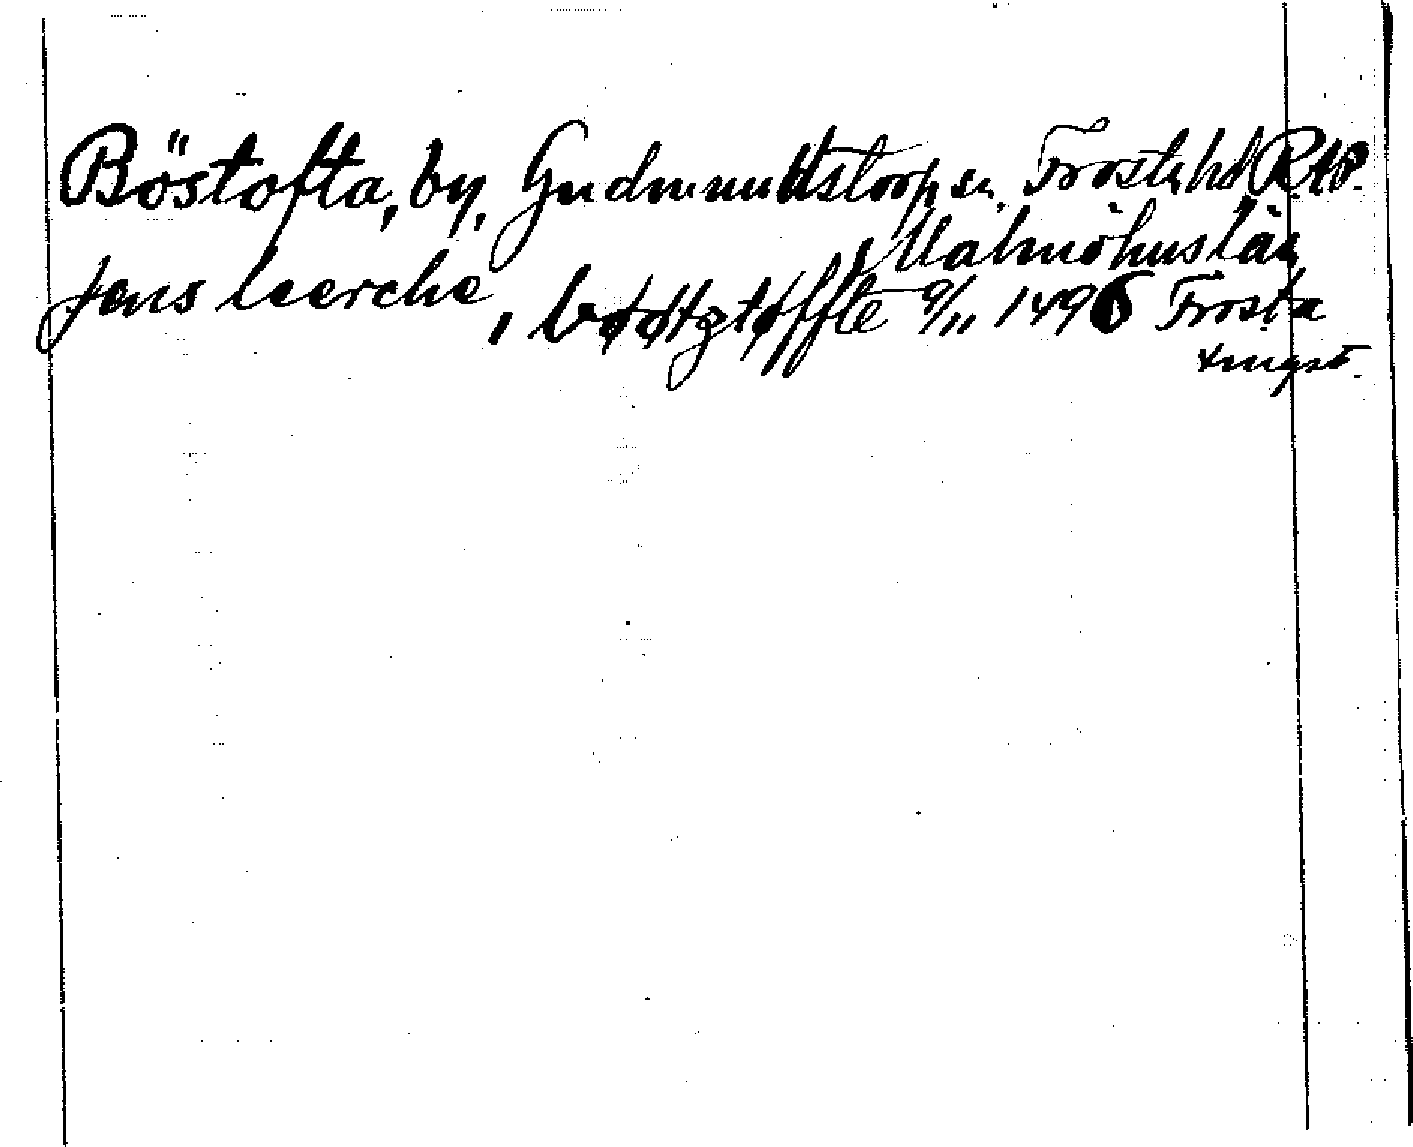 Böstofta, by, Gudmuntstorp sn, Frosta hd,
Malmöhus län
Jens leerche, 9/11 1496 Frosta
tingst.